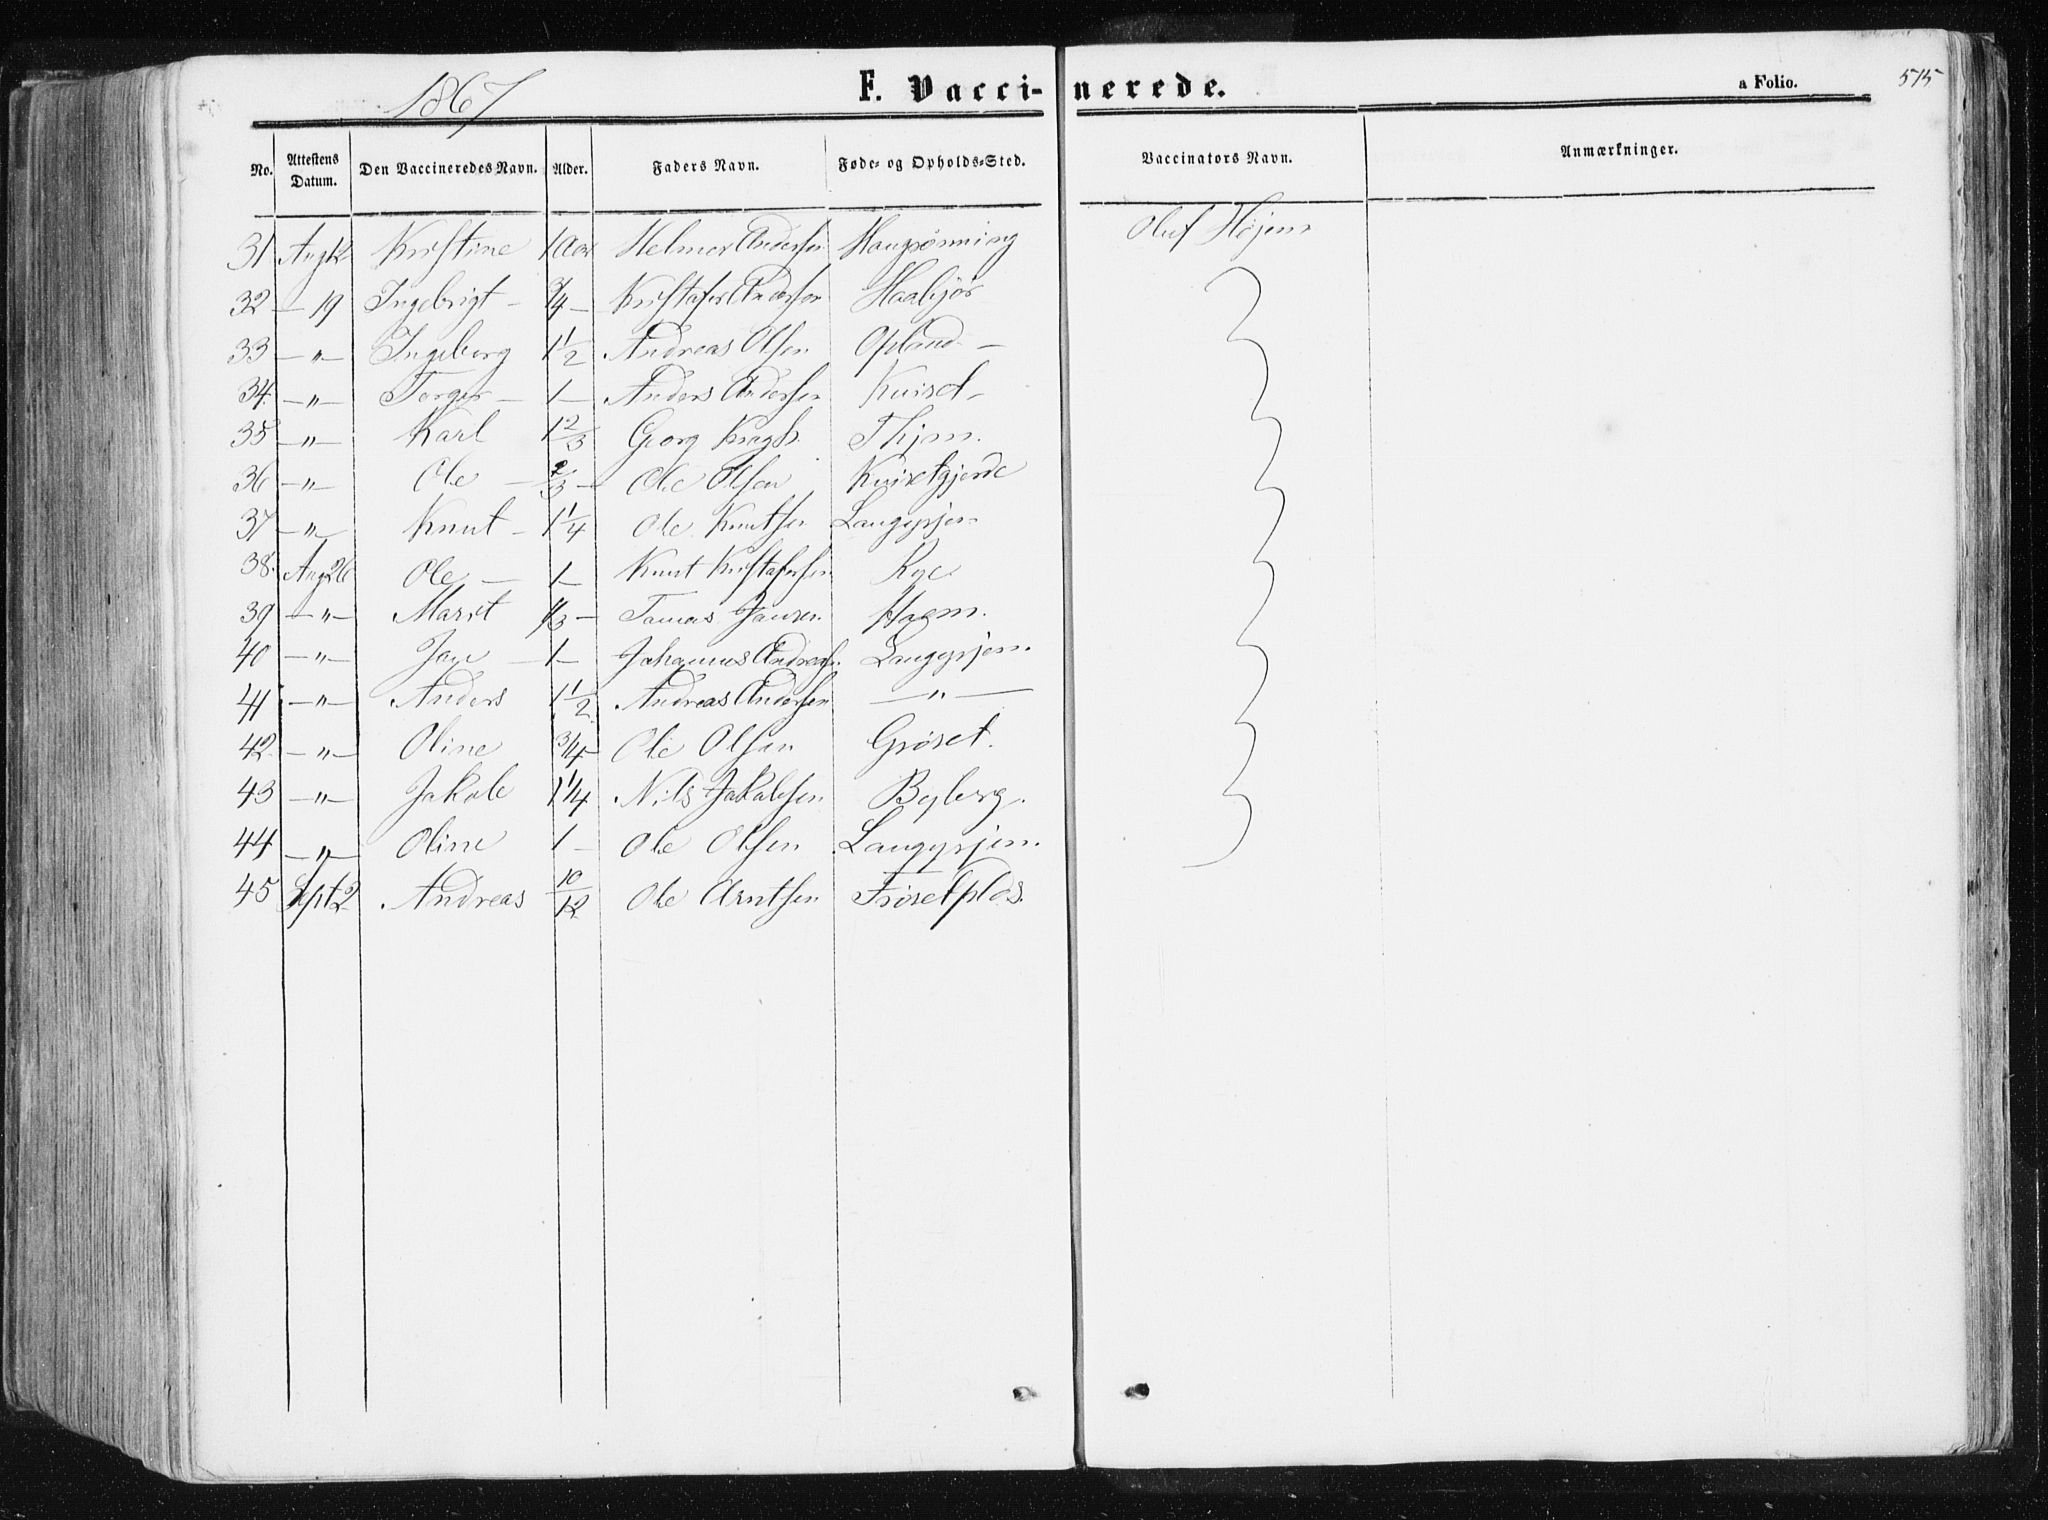 1867 F. Vacci- nerede. a Folio. 515
No. Attestens Datum. Den Vaccineredes Navn. Alder. Faders Navn. Føde- og Opholds-Sted. Vaccinators Navn. Anmærkninger.
31 Aug 12 Kristine 1 Aar Helmer Andersen Haugrønning Oluf Højem
32 — 19 Ingebrigt — 3/4 — Kristafer Andersen Haabjør
33 — " — Ingeborg 1 1/2 Andreas Olsen Opland —
34. — " — Torger — 1 — Anders Andersen Kuiset
35 — " — Karl 1 2/3 Georg Kragh Thjem.
36 — " — Ole — 2/3 — Ole Olsen Kuisetgjerde
37 — " — Knut — 1 1/4 Ole Knutsen Langørjen
38. Aug 26 Ole — 1 — Knut Kristafersen Rye.
39 — " — Marit 1/3 — Tomas Jansen Hagen.
40 — " — Jan — 1 — Johannes Andreas. Langørjen.
41 — " — Anders 1 1/2 Andreas Andersen — " —
42. — " — Oline 3/4 — Ole Olsen Grøset.
43 — " — Jakob 1 1/4 Nils Jakobsen Byberg.
44 — " — Oline 1 — Ole Olsen Langørjen.
45 Sept 2 Andreas 10/12 Ole Arntsen Frøsetplds.